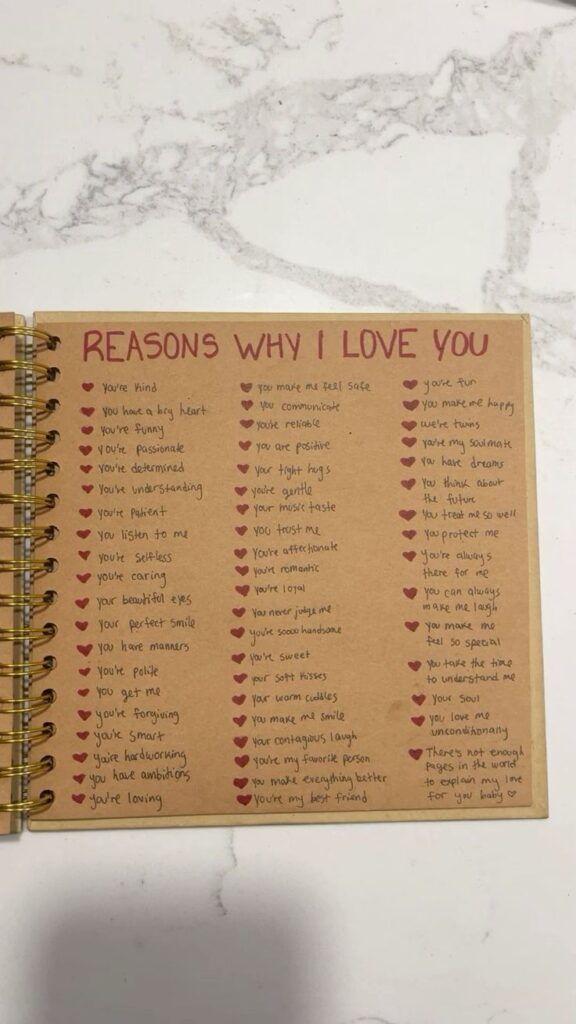 REASONS WHY I LOVE YOU
you're kind
you have a big heart
you're funny
you're passionate
you're determined
you're understanding
you're patient
you listen to me
you're selfless
you're caring
your beautiful eyes
your perfect smile
you have manners
you're polite
you get me
you're forgiving
you're smart
you're hardworking
you have ambitions
you're loving
you make me feel safe
you communicate
you're reliable
you are positive
your tight hugs
you're gentle
your music taste
you trust me
you're affectionate
you're romantic
you're loyal
you never judge me
you're soooo handsome
you're sweet
your soft kisses
your warm cuddles
you make me smile
your contagious laugh
you're my favorite person
you make everything better
you're my best friend
you're fun
you make me happy
we're twins
you're my soulmate
you have dreams
you think about
the future
you treat me so well
you protect me
you're always
there for me
you can always
make me laugh
you make me
feel so special
you take the time
to understand me
your soul
you love me
unconditionally
There's not enough
pages in the world
to explain my love
for you baby ♡